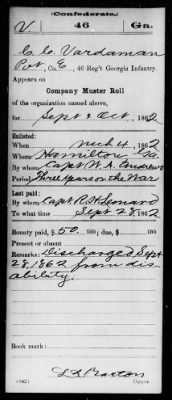 Confederate.
V 46 Ga.
C. C. Vardaman
Pvt, Co. E, 46 Reg't Georgia Infantry.
Appears on
Company Muster Roll
of the organization named above,
for Sept & Oct, 1862
Enlisted:
When Mch 4, 1862
Where Hamilton Ga
By whom Capt W. A. Andrews
Period Three years or the War
Last paid:
By whom Capt R. H. Leonard
To what time Sept 28, 1862
Bounty paid $ 50. 100; due $ 100
Present or absent
Remarks: Discharged Sept
28, 1862 from dis-
ability.
Book mark:
(642) Copyist.